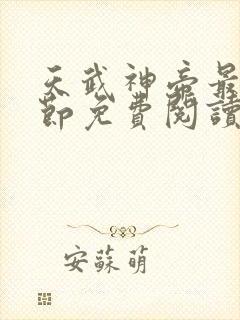 天武神帝最
節免費閱讀
安蘇萌